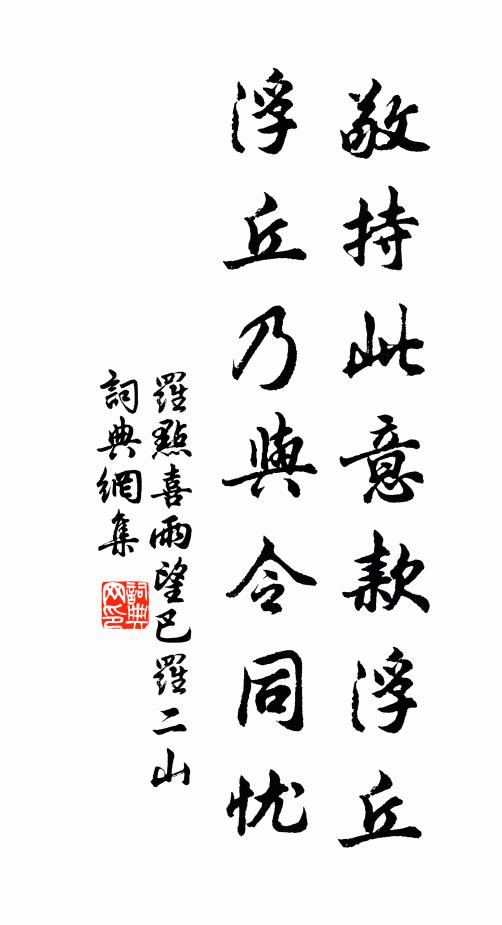 敬持此意款浮丘
浮丘乃與令同忧
羅點喜雨望巴羅二山
詞典網集
詞典网印